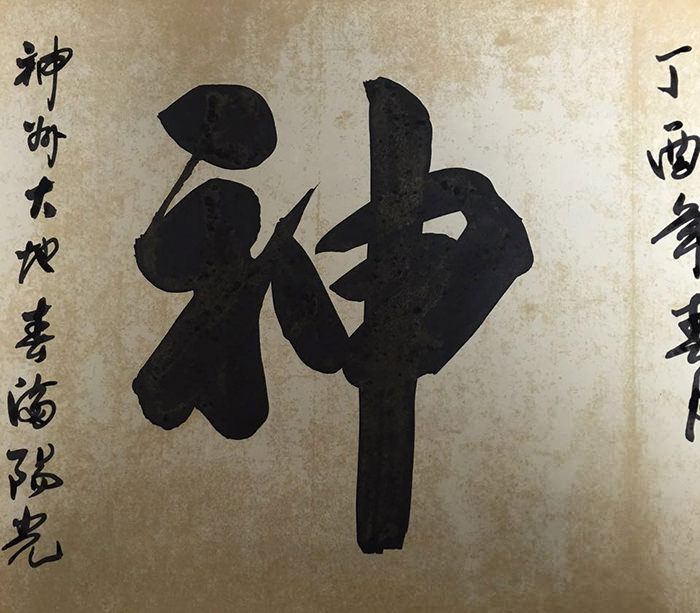 丁酉年春月
神
神州大地春滿陽光